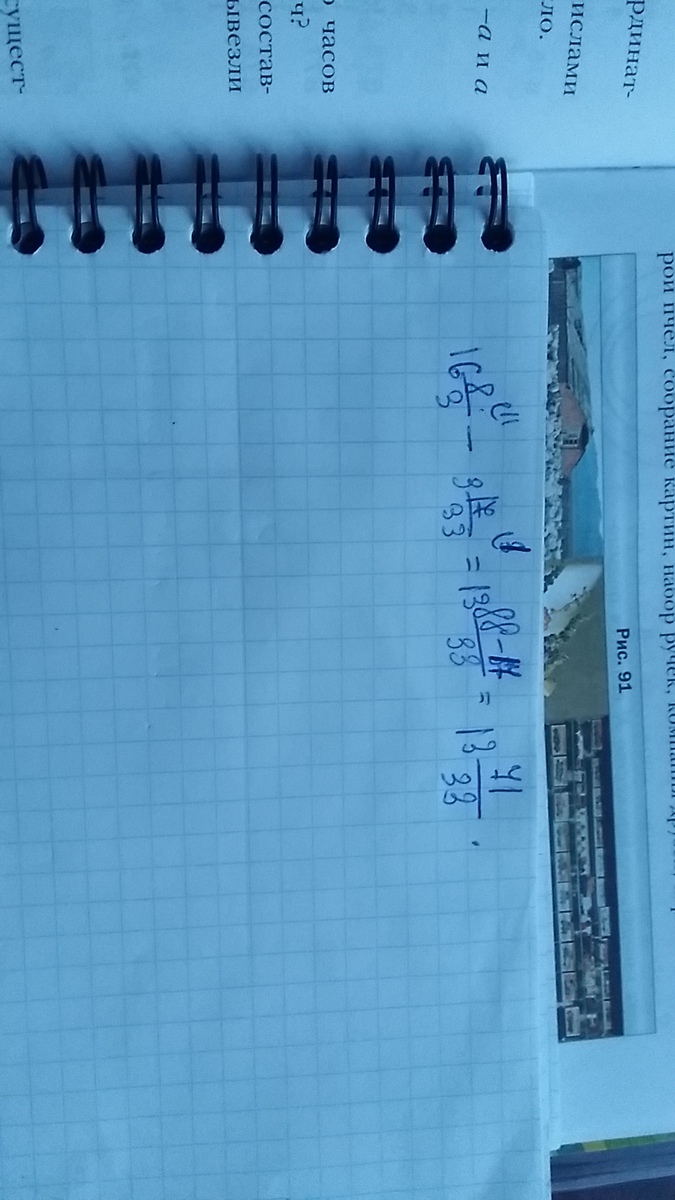 рдинат-
ислами
ло.
-а и а
часов
ч?
состав-
ывезли
ущест-
рой пчел, собрание картин, набор ручек, компания
Рис. 91
16 8/3 (11 - 3 17/33 (1 = 13 88-17/33 = 13 71/33.